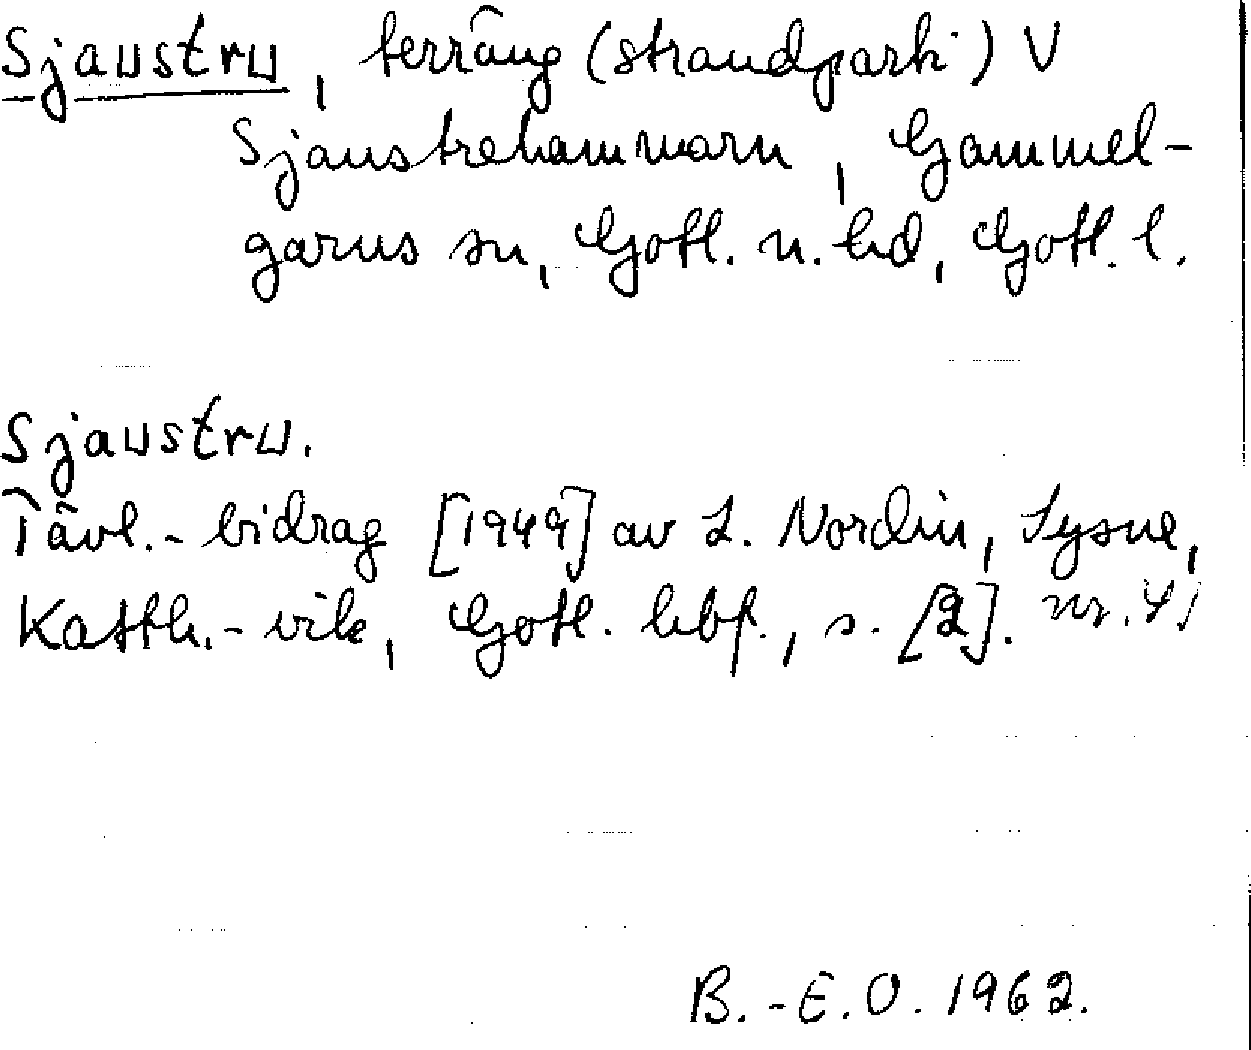 Sjaustru, terräng (strandpark) V
Sjaustrehammarn, Gammel-
garns sn, Gotl. n. hd, Gotl. l.
Sjaustru.
Tävl.- bidrag [1949] av L. Nordin, Sysne,
Katth.- vik, Gotl. hbf., s. [2]. nr. 41
B.-E.O. 1962.